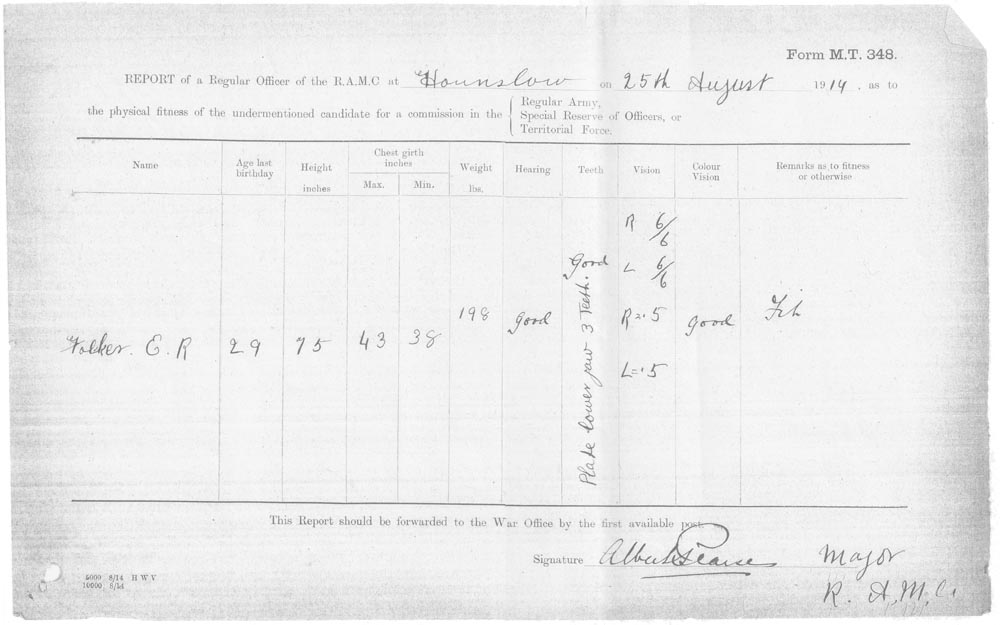 Form M.T. 348.
REPORT of a Regular Officer of the R.A.M.C at Hounslow on 25th August 1914. as to
the physical fitness of the undermentioned candidate for a commission in the
Regular Army,
Special Reserve of Officers, or
Territorial Force.
Name
Age last
birthday
Height
inches
Chest girth
inches
Max.
Min.
Weight
lbs.
Hearing
Teeth
Vision
Colour
Vision
Remarks as to fitness
or otherwise
E. R
29
75
43
38
198
good
Good
Plate lower jaw 3 Teeth.
R 6/6
L 6/6
R = .5
L = .5
good
Fit
This Report should be forwarded to the War Office by the first available post.
Signature Albert Pearse Major
R. A. M. C.
5000 8/14 H W V
10000 8/14